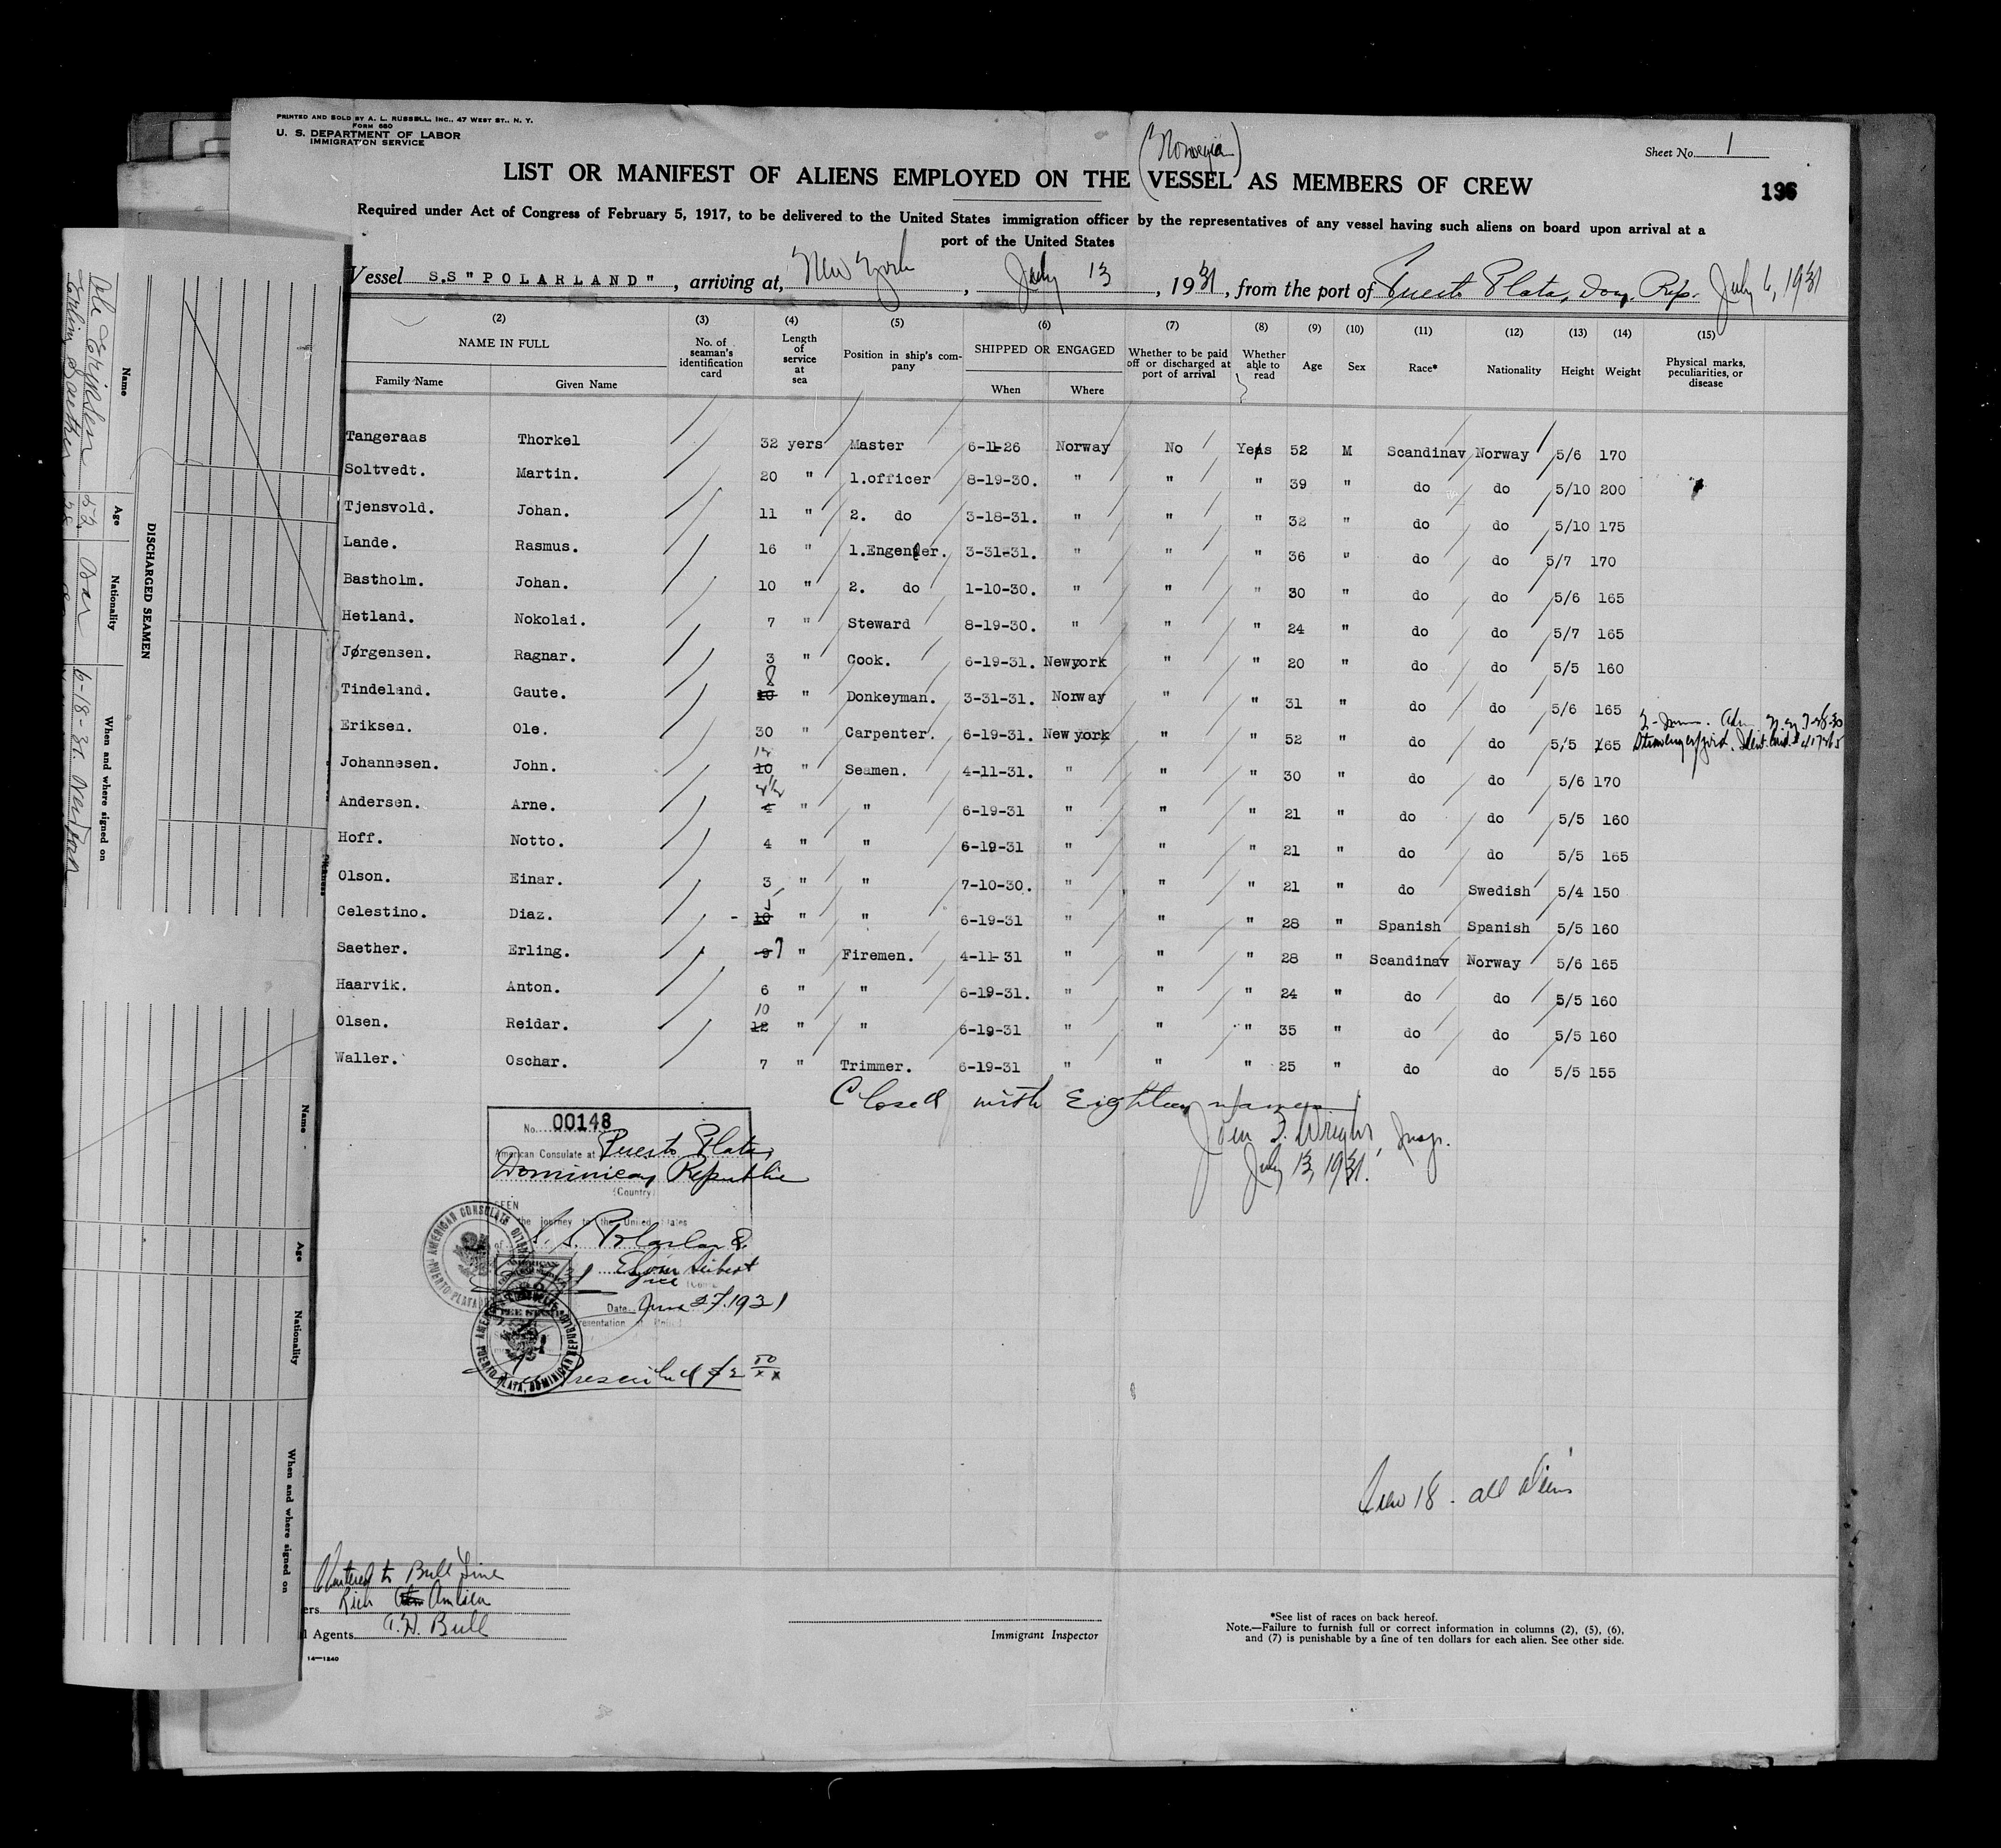 PRINTED AND SOLD BY A. L. RUSSELL, INC., 47 WEST ST., N. Y.
FORM 680
U. S. DEPARTMENT OF LABOR
IMMIGRATION SERVICE
Sheet No. 1
(Norwegian)
LIST OR MANIFEST OF ALIENS EMPLOYED ON THE VESSEL AS MEMBERS OF CREW
196
Required under Act of Congress of February 5, 1917, to be delivered to the United States immigration officer by the representatives of any vessel having such aliens on board upon arrival at a
port of the United States
Vessel S.S "POLARLAND", arriving at, New York, July 13, 1931, from the port of Puerto Plata, Dom. Rep. July 6, 1931
(2) (3) (4) (5) (6) (7) (8) (9) (10) (11) (12) (13) (14) (15)
NAME IN FULL No. of seaman's identification card Length of service at sea Position in ship's company SHIPPED OR ENGAGED Whether to be paid off or discharged at port of arrival Whether able to read Age Sex Race* Nationality Height Weight Physical marks, peculiarities, or disease
Family Name Given Name When Where
Tangeraas Thorkel 32 yers Master 6-11-26 Norway No Yeas 52 M Scandinav Norway 5/6 170
Soltvedt. Martin. 20 " 1.officer 8-19-30. " " " 39 " do do 5/10 200
Tjensvold. Johan. 11 " 2. do 3-18-31. " " " 32 " do do 5/10 175
Lande. Rasmus. 16 " 1.Engeneer. 3-31-31. " " " 36 " do do 5/7 170
Bastholm. Johan. 10 " 2. do 1-10-30. " " " 30 " do do 5/6 165
Hetland. Nokolai. 7 " Steward 8-19-30. " " " 24 " do do 5/7 165
Jørgensen. Ragnar. 3 " Cook. 6-19-31. Newyork " " 20 " do do 5/5 160
Tindeland. Gaute. 8 10 " Donkeyman. 3-31-31. Norway " " 31 " do do 5/6 165
Eriksen. Ole. 30 " Carpenter. 6-19-31. New york " " 52 " do do 5/5 165 Stavangerfjord. Ident. Card
Johannesen. John. 12 10 " Seamen. 4-11-31. " " " 30 " do do 5/6 170
Andersen. Arne. " " 6-19-31 " " " 21 " do do 5/5 160
Hoff. Notto. 4 " " 6-19-31 " " " 21 " do do 5/5 165
Olson. Einar. 3 " " 7-10-30. " " " 21 " do Swedish 5/4 150
Celestino. Diaz. 10 " " 6-19-31 " " " 28 " Spanish Spanish 5/5 160
Saether. Erling. 9 7 " Firemen. 4-11-31 " " " 28 " Scandinav Norway 5/6 165
Haarvik. Anton. 6 " " 6-19-31. " " " 24 " do do 5/5 160
Olsen. Reidar. 10 12 " " 6-19-31 " " " 35 " do do 5/5 160
Waller. Oschar. 7 " Trimmer. 6-19-31 " " " 25 " do do 5/5 155
Closed with Eighteen names
John F. Wright, Insp.
July 13, 1931.
No. 00148
American Consulate at Puerto Plata,
Dominican Republic
(Country)
SEEN
the journey to the United States
of S. S. Polarland
Vice
Date June 27, 1931
AMERICAN CONSULATE
PUERTO PLATA, DOMINICAN REPUBLIC
Fee Prescribed $2 50/xx
Crew 18 - all aliens
Chartered to Bull Line
A. H. Bull
Agents
Immigrant Inspector
*See list of races on back hereof.
Note.—Failure to furnish full or correct information in columns (2), (5), (6),
and (7) is punishable by a fine of ten dollars for each alien. See other side.
14—1240
DISCHARGED SEAMEN
Name Age Nationality When and where signed on
Ole Eriksen 52 Nor 6-18-31 New York
Erling Saether 28
Name Age Nationality When and where signed on